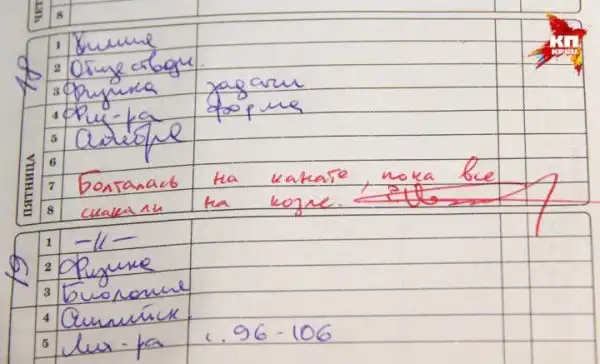 ЧЕТ
8
КП
KP.RU
18
ПЯТНИЦА
1 Химия
2 Обществозн.
3 Физика задачи
4 Физ-ра форма
5 Алгебра
6
7 Болталась на канате, пока все
8 скакали на козле.
19
1 -||-
2 Физика
3 Биология
4 Английск.
5 Лит-ра с. 96-106